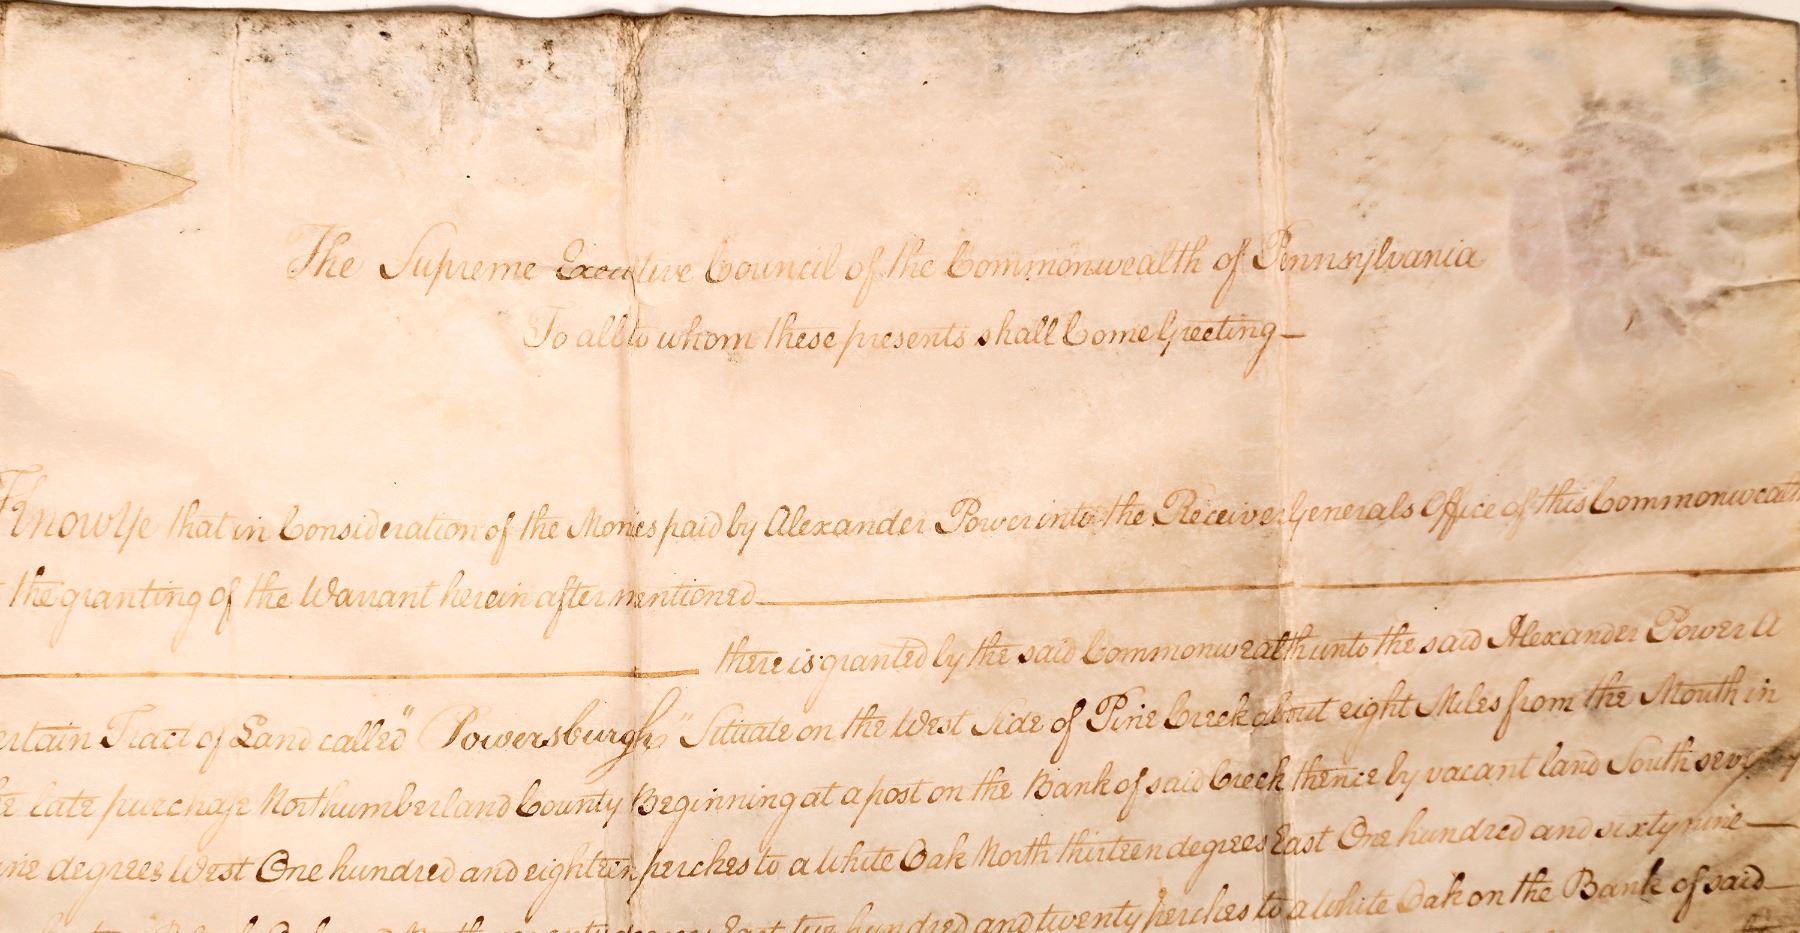 The Supreme Executive Council of the Commonwealth of Pennsylvania
To all to whom these presents shall Come Greeting—
Know Ye that in Consideration of the Monies paid by Alexander Power into the Receiver Generals Office of this Commonwealth
the granting of the Warrant herein after mentioned
there is granted by the said Commonwealth unto the said Alexander Power A
ertain Tract of Land called "Powersburgh" Situate on the West Side of Pine Creek about eight Miles from the Mouth in
late purchase Northumberland County Beginning at a post on the Bank of said Creek thence by vacant land South seventy
ine degrees West One hundred and eighteen perches to a White Oak North thirteen degrees East One hundred and sixty nine—
degrees East two hundred and twenty perches to a White Oak on the Bank of said—